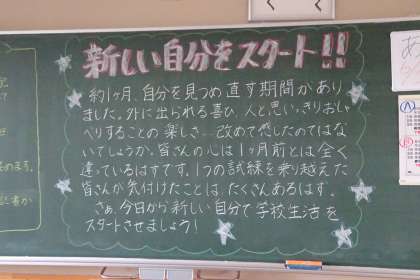 新しい自分をスタート!!
約1ヶ月、自分を見つめ直す期間があり
ました。外に出られる喜び、人と思いきりおしゃ
べりすることの楽しさ…改めて感じたのではな
いでしょうか。皆さんの心は1ヶ月前とは全く
違っているはずです。1つの試練を乗り越えた
皆さんが気付けたことは、たくさんあるはず。
さぁ、今日から新しい自分で学校生活を
スタートさせましょう!
あ
A